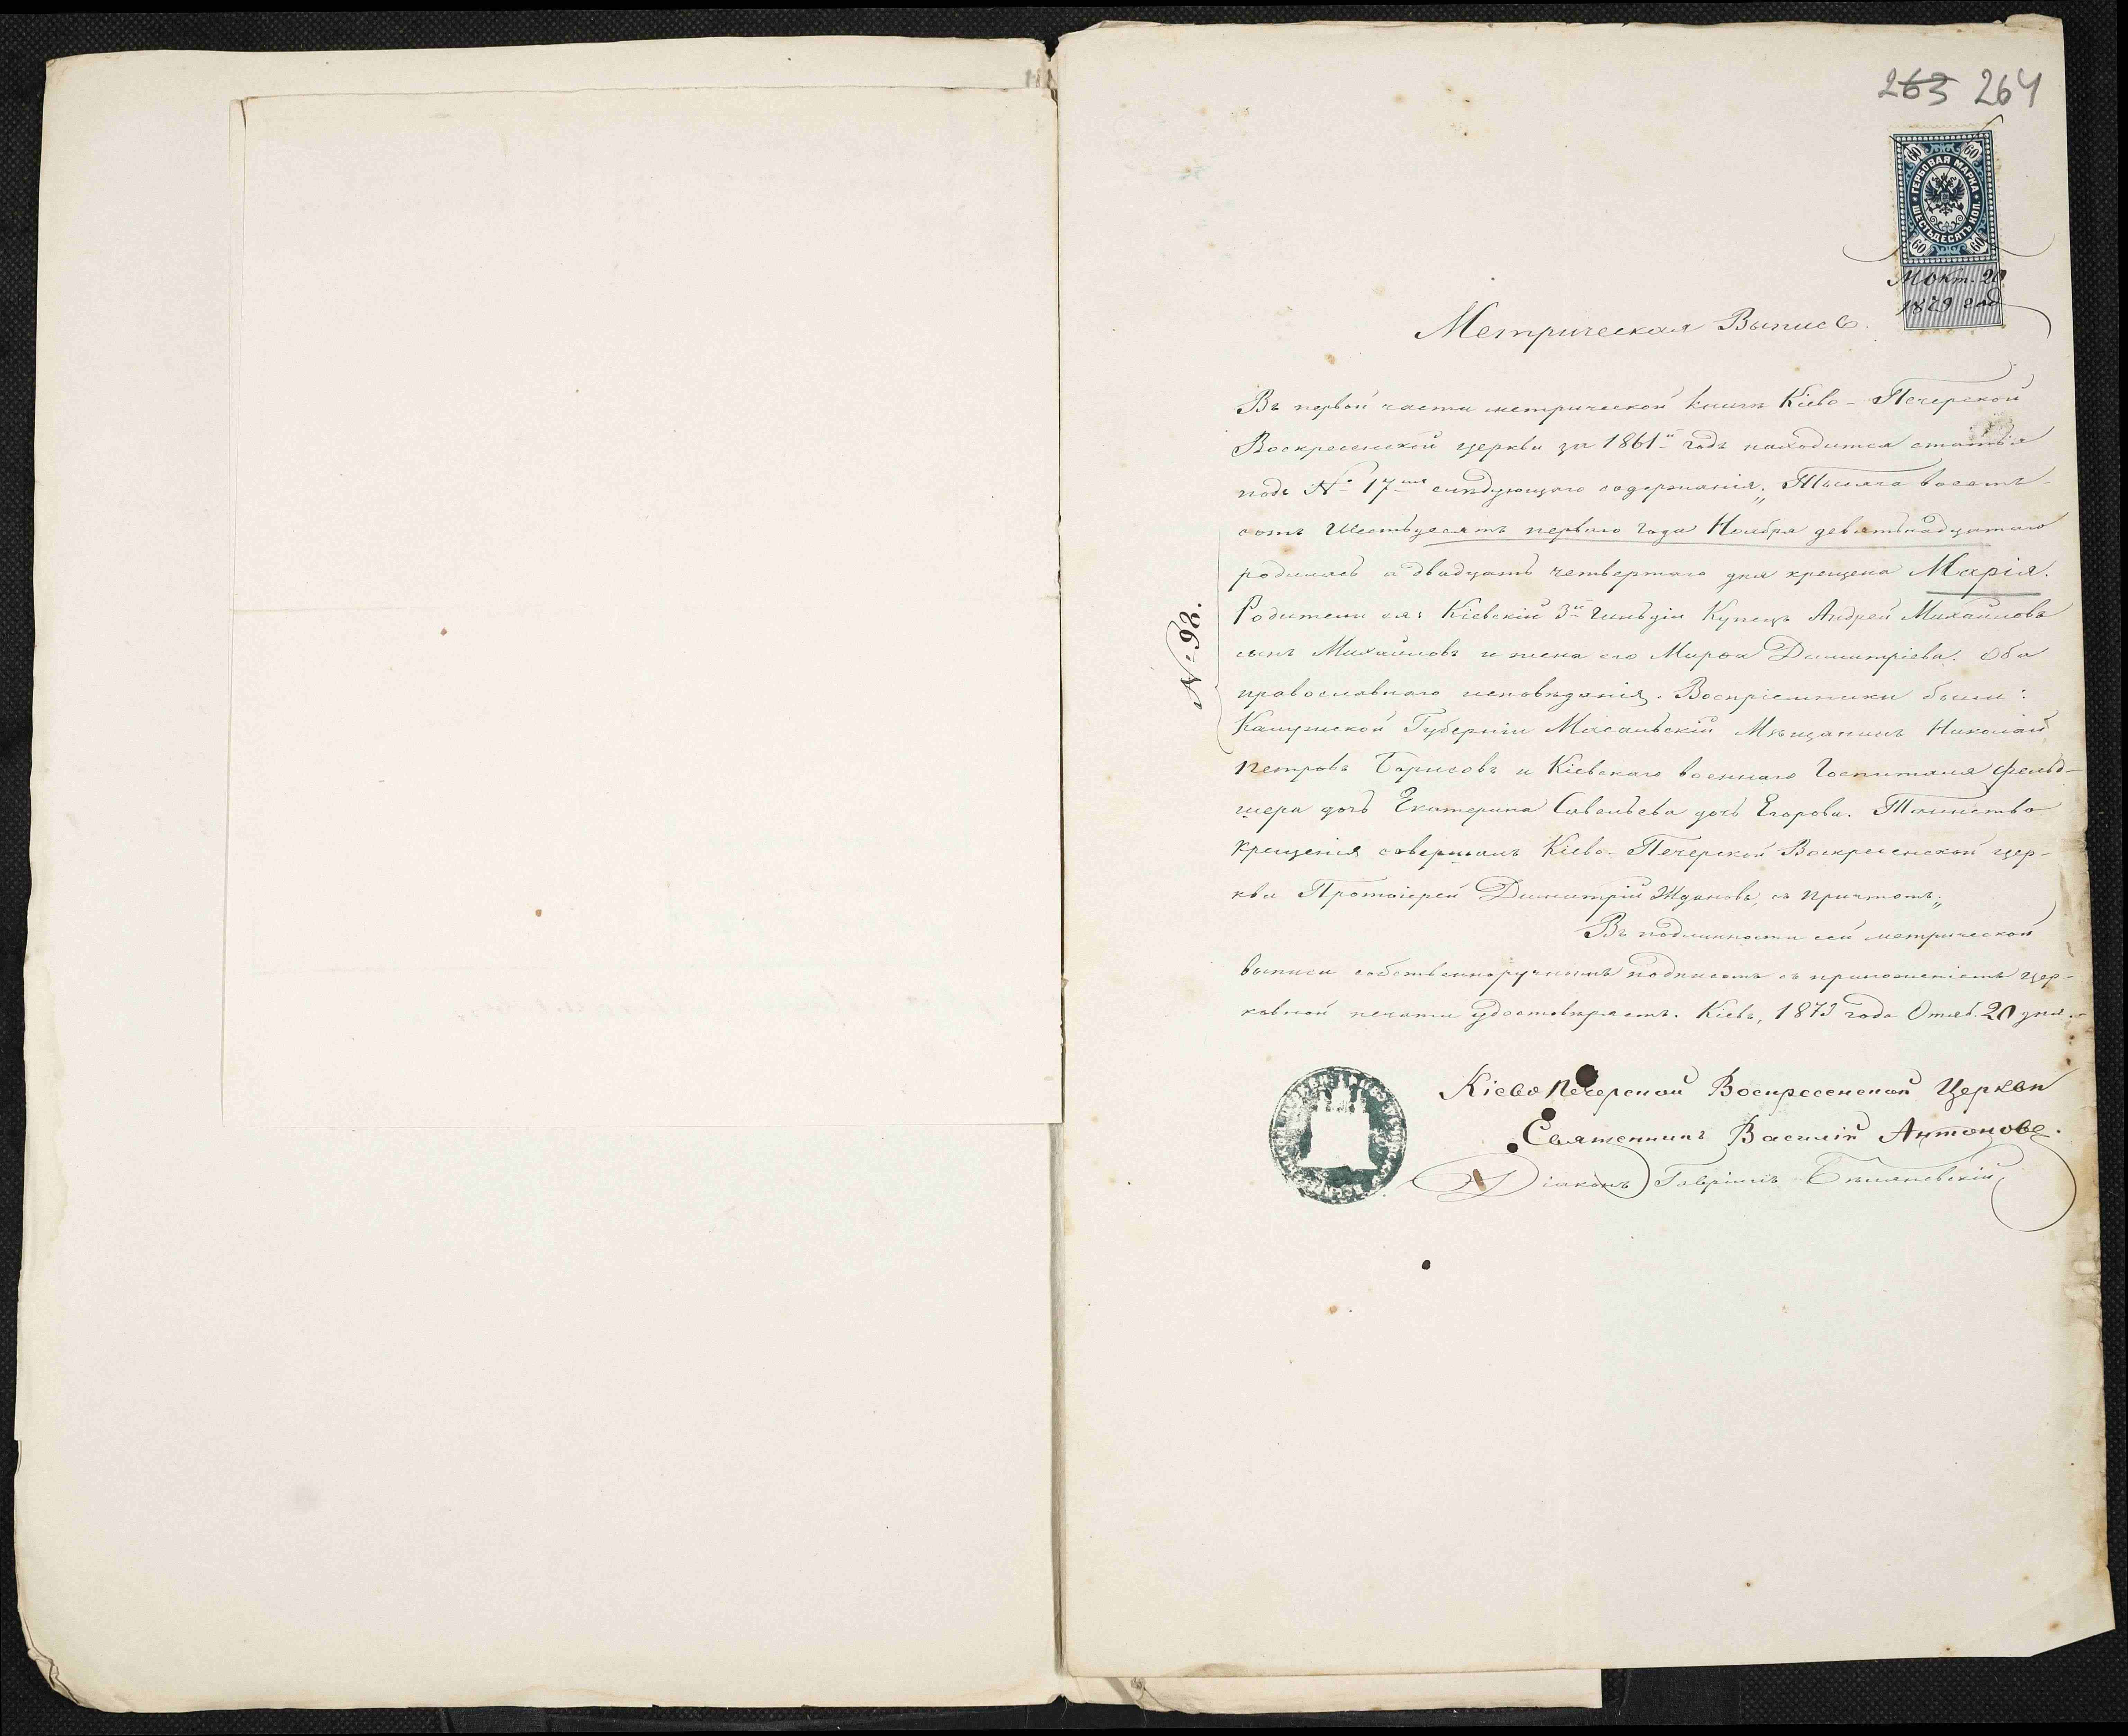 263 264
60 60
ГЕРБОВАЯ МАРКА
ШЕСТЬДЕСЯТЪ КОП.
60 60
Окт. 20
1879 год
Метрическая Выпись.
Въ первой части метрической книги Кіево-Печерской
Воскресенской церкви за 1861й годъ находится статья
подъ № 17мъ слѣдующаго содержанія: „Тысяча восемь-
сотъ шестьдесятъ перваго года Ноября девятьнадцатаго
родилась а двадцать четвертаго дня крещена Марія.
Родители ея: Кіевскій 3й Гильдіи Купецъ Андрей Михайловъ
сынъ Михайловъ и жена его Марѳа Димитріева. Оба
православнаго исповѣданія. Воспріемники были:
Калужской Губерніи Масальскій Мѣщанинъ Николай
Петровъ Борисовъ и Кіевскаго военнаго Госпиталя фельд-
шера дочь Екатерина Савельева дочь Егорова. Таинство
крещенія совершалъ Кіево-Печерской Воскресенской цер-
кви Протоіерей Димитрій Ждановъ, съ причтомъ„
№ 92.
Въ подлинности сей метрической
выписи собственноручнымъ подписомъ съ приложеніемъ цер-
ковной печати удостовѣряемъ. Кіевъ, 1879 года Октяб. 20 дня.
Кіево Печерской Воскресенской Церкви
Священникъ Василій Антоновъ.
Діаконъ Гавріилъ